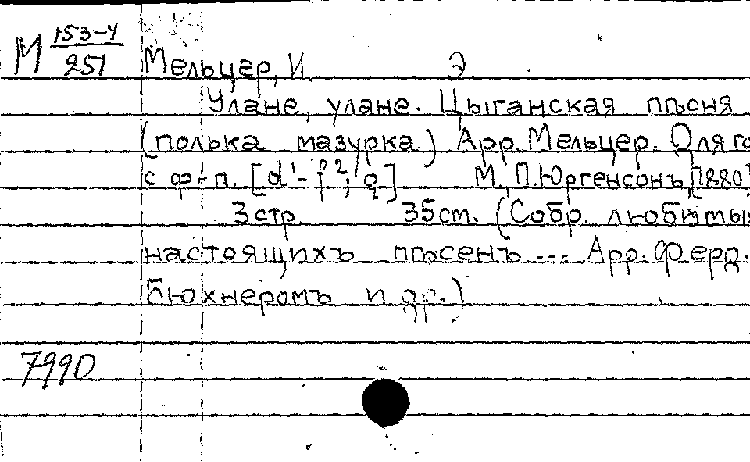 М 153-4/251 Мельцер, И. Э
Улане, улане. Цыганская пѣсня
(полька мазурка) Арр. Мельцер. Для го
с ф-п. [d¹-f²; g] М., П. Юргенсонъ, [1880]
3 стр. 35 см. (Собр. любимы
настоящихъ пѣсенъ... Арр. Ферд.
Бюхнеромъ и др.)
7990